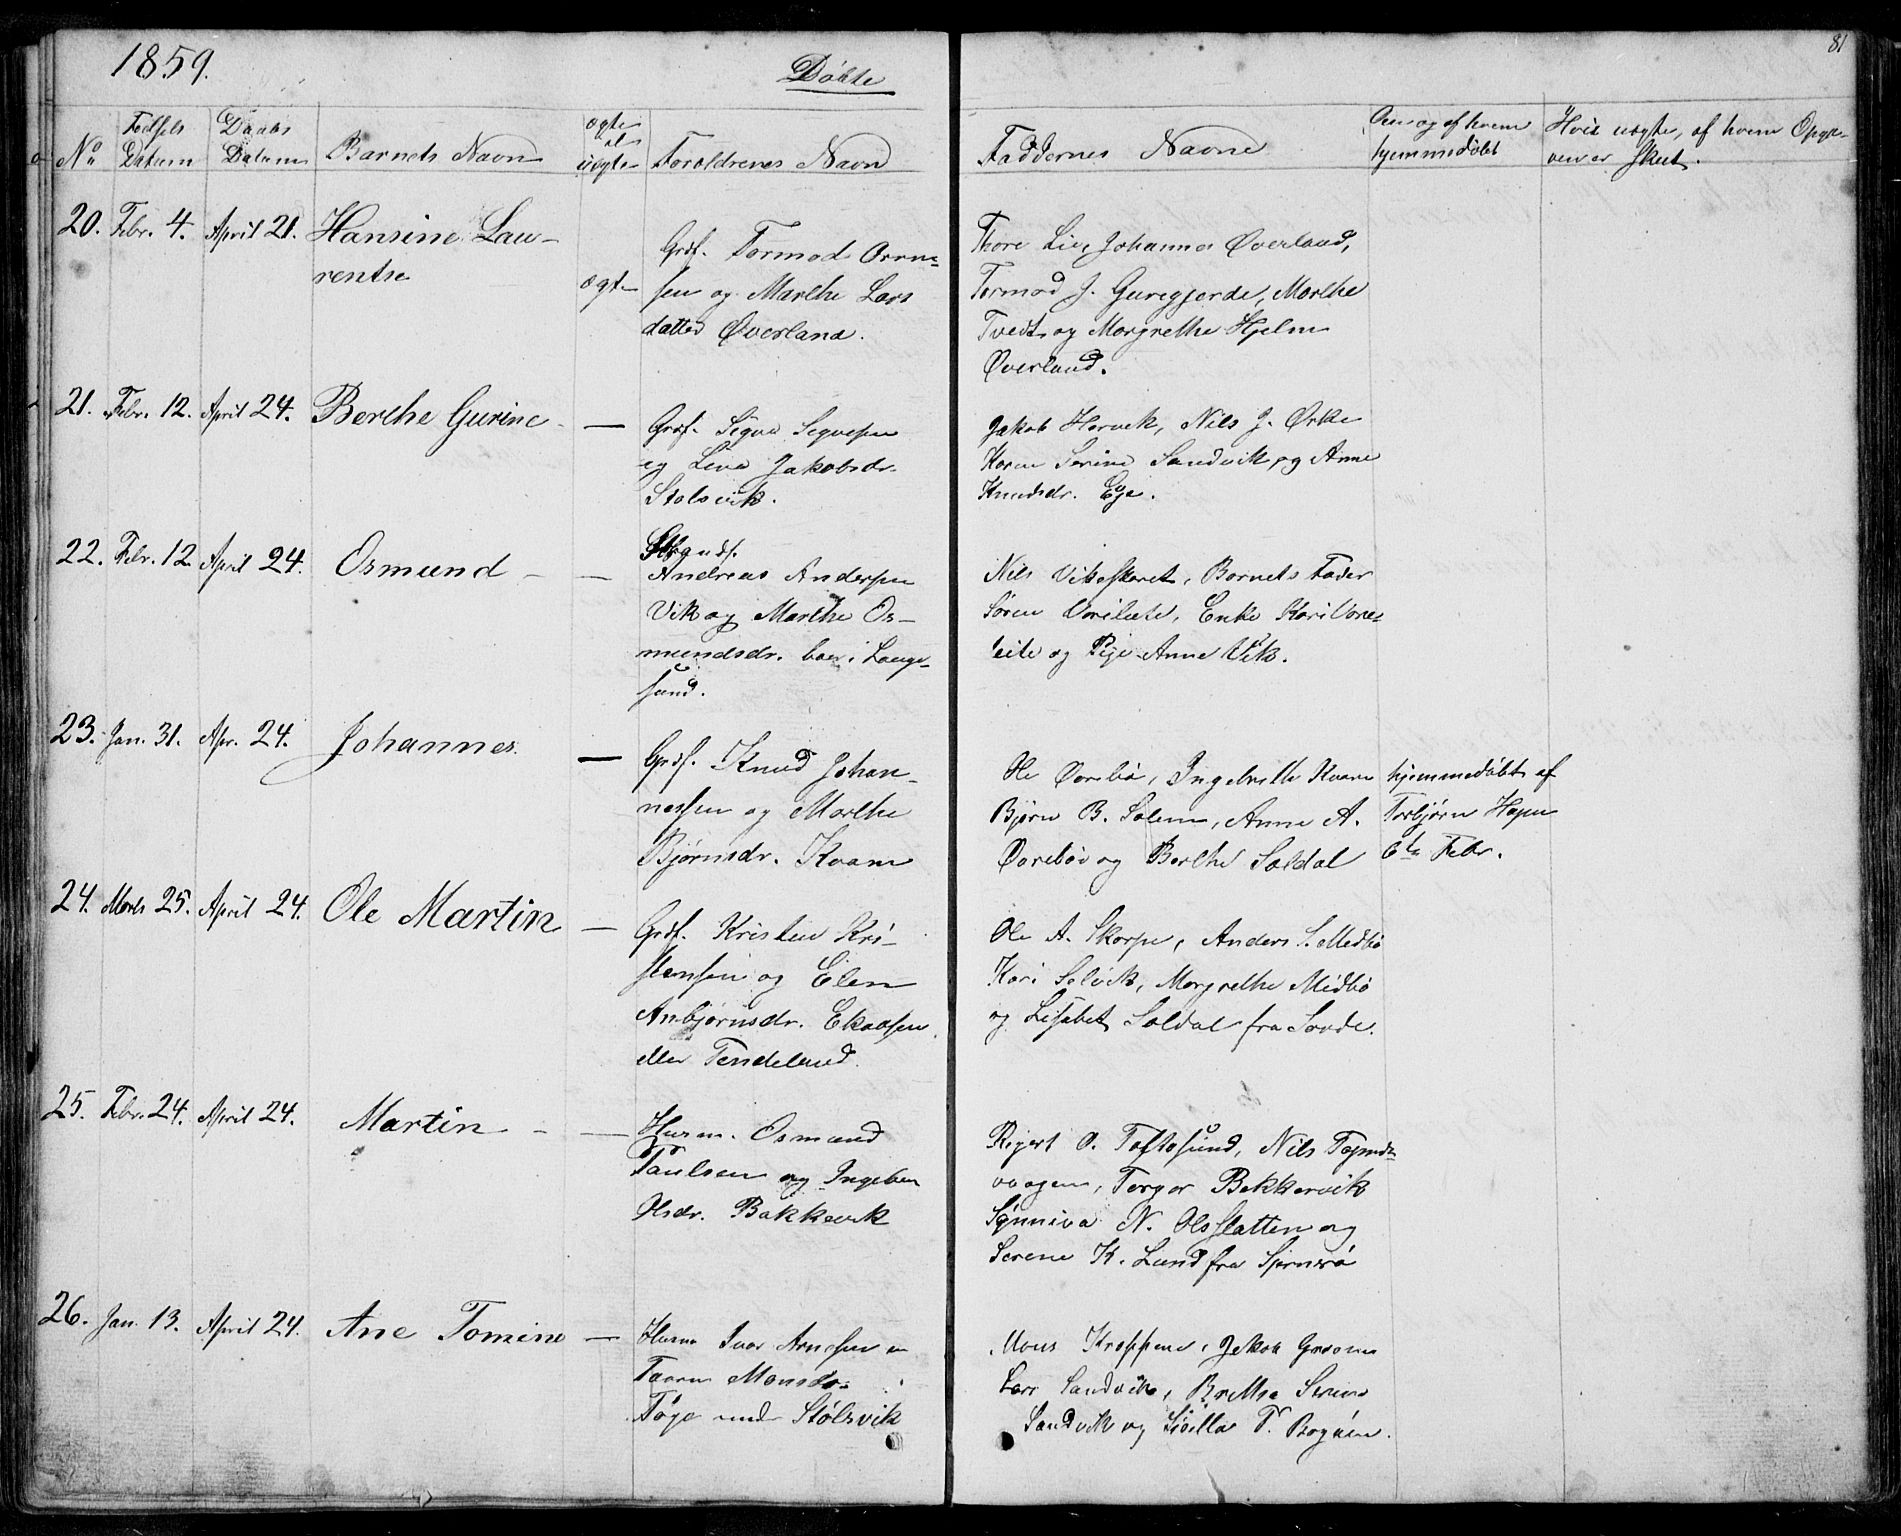 1859.
Döbte
81
No
Födsels Datum
Daabs Datum
Barnets Navn
ægte el uægte
Forældrenes Navn
Faddernes Navne
Om og af hvem hjemmedöbt
Hvis uægte, af hvem Opgi-
ven er skeet.
20. Febr. 4. April 21. Hansine Lau-
rentse
ægte
Grdf. Tormod Orm-
sen og Marthe Lars
datter Øverland.
Thore Lie, Johannes Øverland,
Tormod J. Guregjerde, Marthe
Tvedt og Margrethe Hjelm
Øverland.
21. Febr. 12. April 24. Berthe Gurine -
—
Grdf. Sigva Sigvesen
og Liva Jakobsdr.
Stolsvik.
Jakob Hervik, Nils J. Örke
Karen Serine Sandvik og Anne
Knudsdr. Eje.
22. Febr. 12 April 24. Osmund -
—
Strands.
Andreas Andersen
Vik og Marthe Os-
mundsdr. boer i Lange-
sund.
Nils Vikaskaret, Barnets Fader
Sören Vorelæte, Enke Kari Vore-
leite og Pige Anne Vik.
23. Jan. 31. Apr. 24. Johannes.
—
Grdf. Knud Johan-
nessen og Marthe
Bjørnsdr. Kvam
Ole Övrebö, Ingebrette Kvam
Bjørn B. Solem, Anne A.
Övrebö og Berthe Soldal
hjemmedöbt af
Torbjørn Hopen
6te Febr.
24. Marts 25. April 24. Ole Martin
—
Grdf. Kristen Kri-
stensen og Elen
Anbjørnsdr. Ekaasen
eller Tendeland.
Ole A. Skorpe, Anders S. Medbö
Kari Selvik, Margrethe Midbö
og Lisabet Soldal fra Sovde.
25. Febr. 24. April 24. Martin -
—
Husm. Osmund
Paulsen og Ingebor
Olsdr. Bakkevik
Rejert O. Toftosund, Nils
vaagen, Torger Bekkervik
Sönniva N. Olsslatten og
Serene K. Lund fra Sjernerö
26. Jan. 13. April 24. Ane Tomine
—
Husm Ivar Arnesen og
Taarn Monsdr.
Töge under Stölsvik
Mons Kroppene, Jakob
Lars Sandvik, Brethe Serine
Sandvik og Sisilla T. Bogöen.